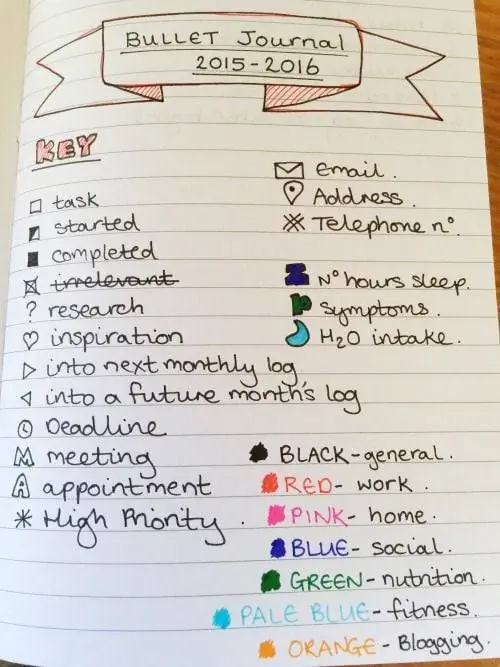 BULLET JOURNAL
2015-2016
KEY
task
started
completed
irrelevant
? research
inspiration
into next monthly log
into a future month's log
Deadline
M meeting
A appointment
* High Priority.
email.
Address.
Telephone n°.
Z N° hours sleep.
P Symptoms.
H₂O intake.
BLACK-general.
RED- work.
PINK- home.
BLUE- social.
GREEN- nutrition.
PALE BLUE- fitness.
ORANGE- Blogging.